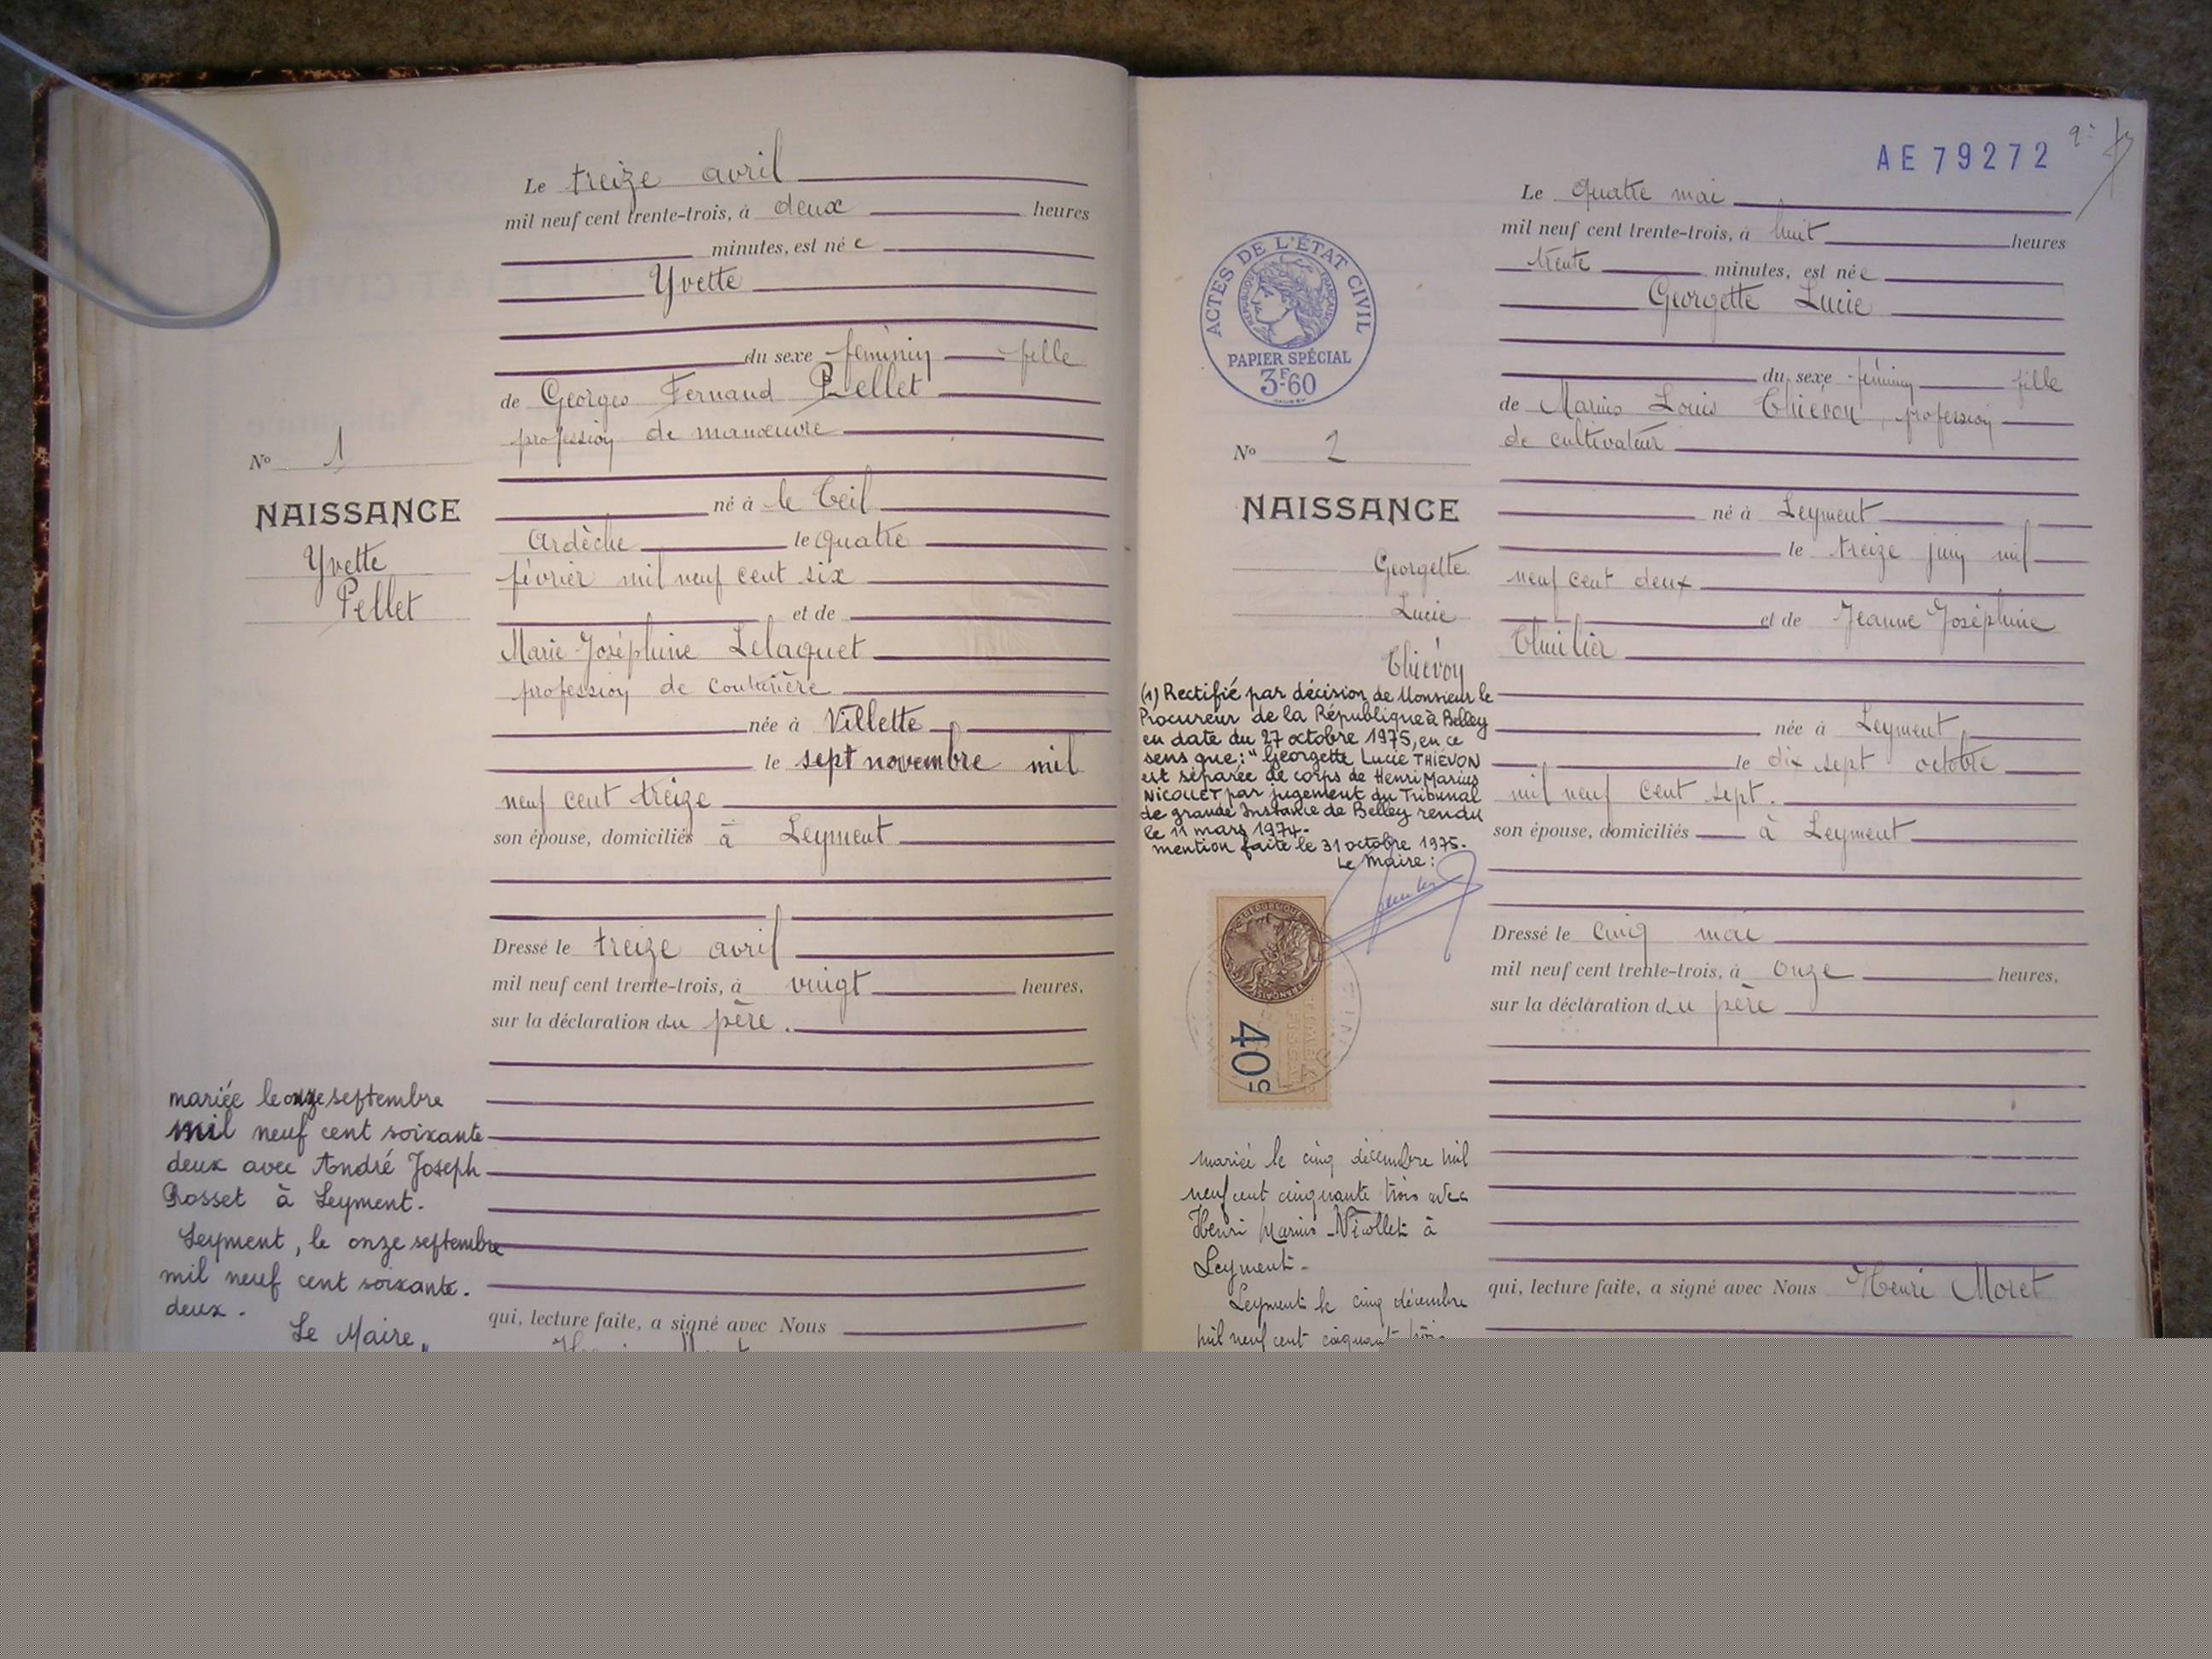 Le treize avril
mil neuf cent trente-trois, à deux heures
minutes, est née
Yvette
du sexe féminin fille
de Georges Fernand Pellet
profession de manœuvre
né à le Teil
Ardèche le quatre
février mil neuf cent six
et de
Marie Joséphine Lelaquet
profession de couturière
née à Villette
le sept novembre mil
neuf cent treize
son épouse, domiciliés à Leyment
Dressé le treize avril
mil neuf cent trente-trois, à vingt heures,
sur la déclaration du père.
qui, lecture faite, a signé avec Nous
Nº 1
NAISSANCE
Yvette
Pellet
mariée le onze septembre
mil neuf cent soixante
deux avec André Joseph
Rosset à Leyment.
Leyment, le onze septembre
mil neuf cent soixante.
deux.
Le Maire,
AE79272
Le quatre mai
mil neuf cent trente-trois, à huit heures
trente minutes, est née
Georgette Lucie
du sexe féminin fille
de Marius Louis Thiévon, profession
de cultivateur
né à Leyment
le treize juin mil
neuf cent deux
et de Jeanne Joséphine
Thuilier
née à Leyment
le dix sept octobre
mil neuf cent sept.
son épouse, domiciliés à Leyment
Dressé le cinq mai
mil neuf cent trente-trois, à onze heures,
sur la déclaration du père
qui, lecture faite, a signé avec Nous Henri Moret
ACTES DE L'ÉTAT CIVIL
RÉPUBLIQUE FRANÇAISE
PAPIER SPÉCIAL
3F60
Nº 2
NAISSANCE
Georgette
Lucie
Thiévon
(1) Rectifié par décision de Monsieur le
Procureur de la République à Belley
en date du 27 octobre 1975, en ce
sens que: "Georgette Lucie THIÉVON
est séparée de corps de Henri Marius
NICOLLET par jugement du Tribunal
de grande Instance de Belley rendu
le 11 mars 1974.
mention faite le 31 octobre 1975.
Le Maire:
40
mariée le cinq décembre mil
neuf cent cinquante trois avec
Henri Marius Nicollet à
Leyment.
Leyment le cinq décembre
mil neuf cent cinquante trois